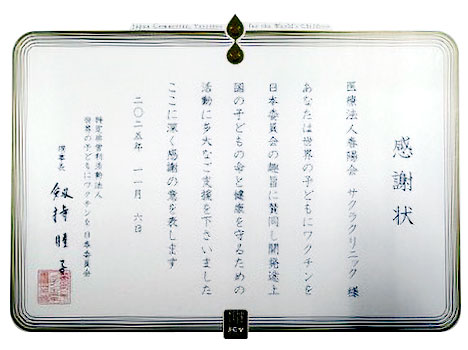 Japan Committee, Vaccines for the World's Children
感謝状
医療法人春陽会 サクラクリニック 様
あなたは世界の子どもにワクチンを
日本委員会の趣旨に賛同し開発途上
国の子どもの命と健康を守るための
活動に多大なご支援を下さいました
ここに深く感謝の意を表します
二〇二五年 一一月 六日
特定非営利活動法人
世界の子どもにワクチンを 日本委員会
理事長
JCV